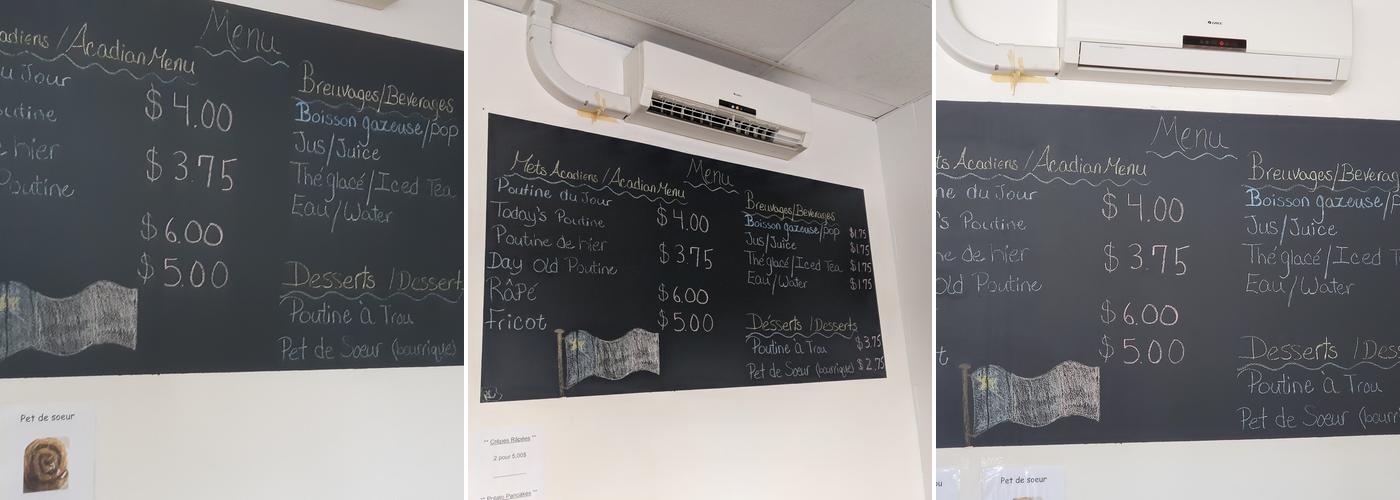 Menu
adiens / Acadian Menu
u Jour
outine
e hier
Poutine
$4.00
$3.75
$6.00
$5.00
Breuvages/Beverages
Boisson gazeuse/pop
Jus/Juice
Thé glacé/Iced Tea
Eau/Water
Desserts /Dessert
Poutine à Trou
Pet de Soeur (bourrique)
Pet de soeur
Menu
Mets Acadiens /Acadian Menu
Poutine du Jour
Today's Poutine $4.00
Poutine de hier
Day Old Poutine $3.75
Râpé $6.00
Fricot $5.00
Breuvages/Beverages
Boisson gazeuse/pop $1.75
Jus/Juice $1.75
Thé glacé/Iced Tea $1.75
Eau/Water $1.75
Désserts /Desserts
Poutine à Trou $3.75
Pet de Soeur (bourrique) $2.75
** Crêpes Râpées **
2 pour 5,00$
** Potato Pancakes
GREE
Menu
ts Acadiens /Acadian Menu
ne du Jour
's Poutine
ne de hier
old Poutine
t
$4.00
$3.75
$6.00
$5.00
Breuvages/Beverag
Boisson gazeuse/p
Jus/Juice
Thé glacé/Iced T
Eau/Water
Desserts /Dess
Poutine à Trou
Pet de Soeur (bourr
ou
Pet de soeur